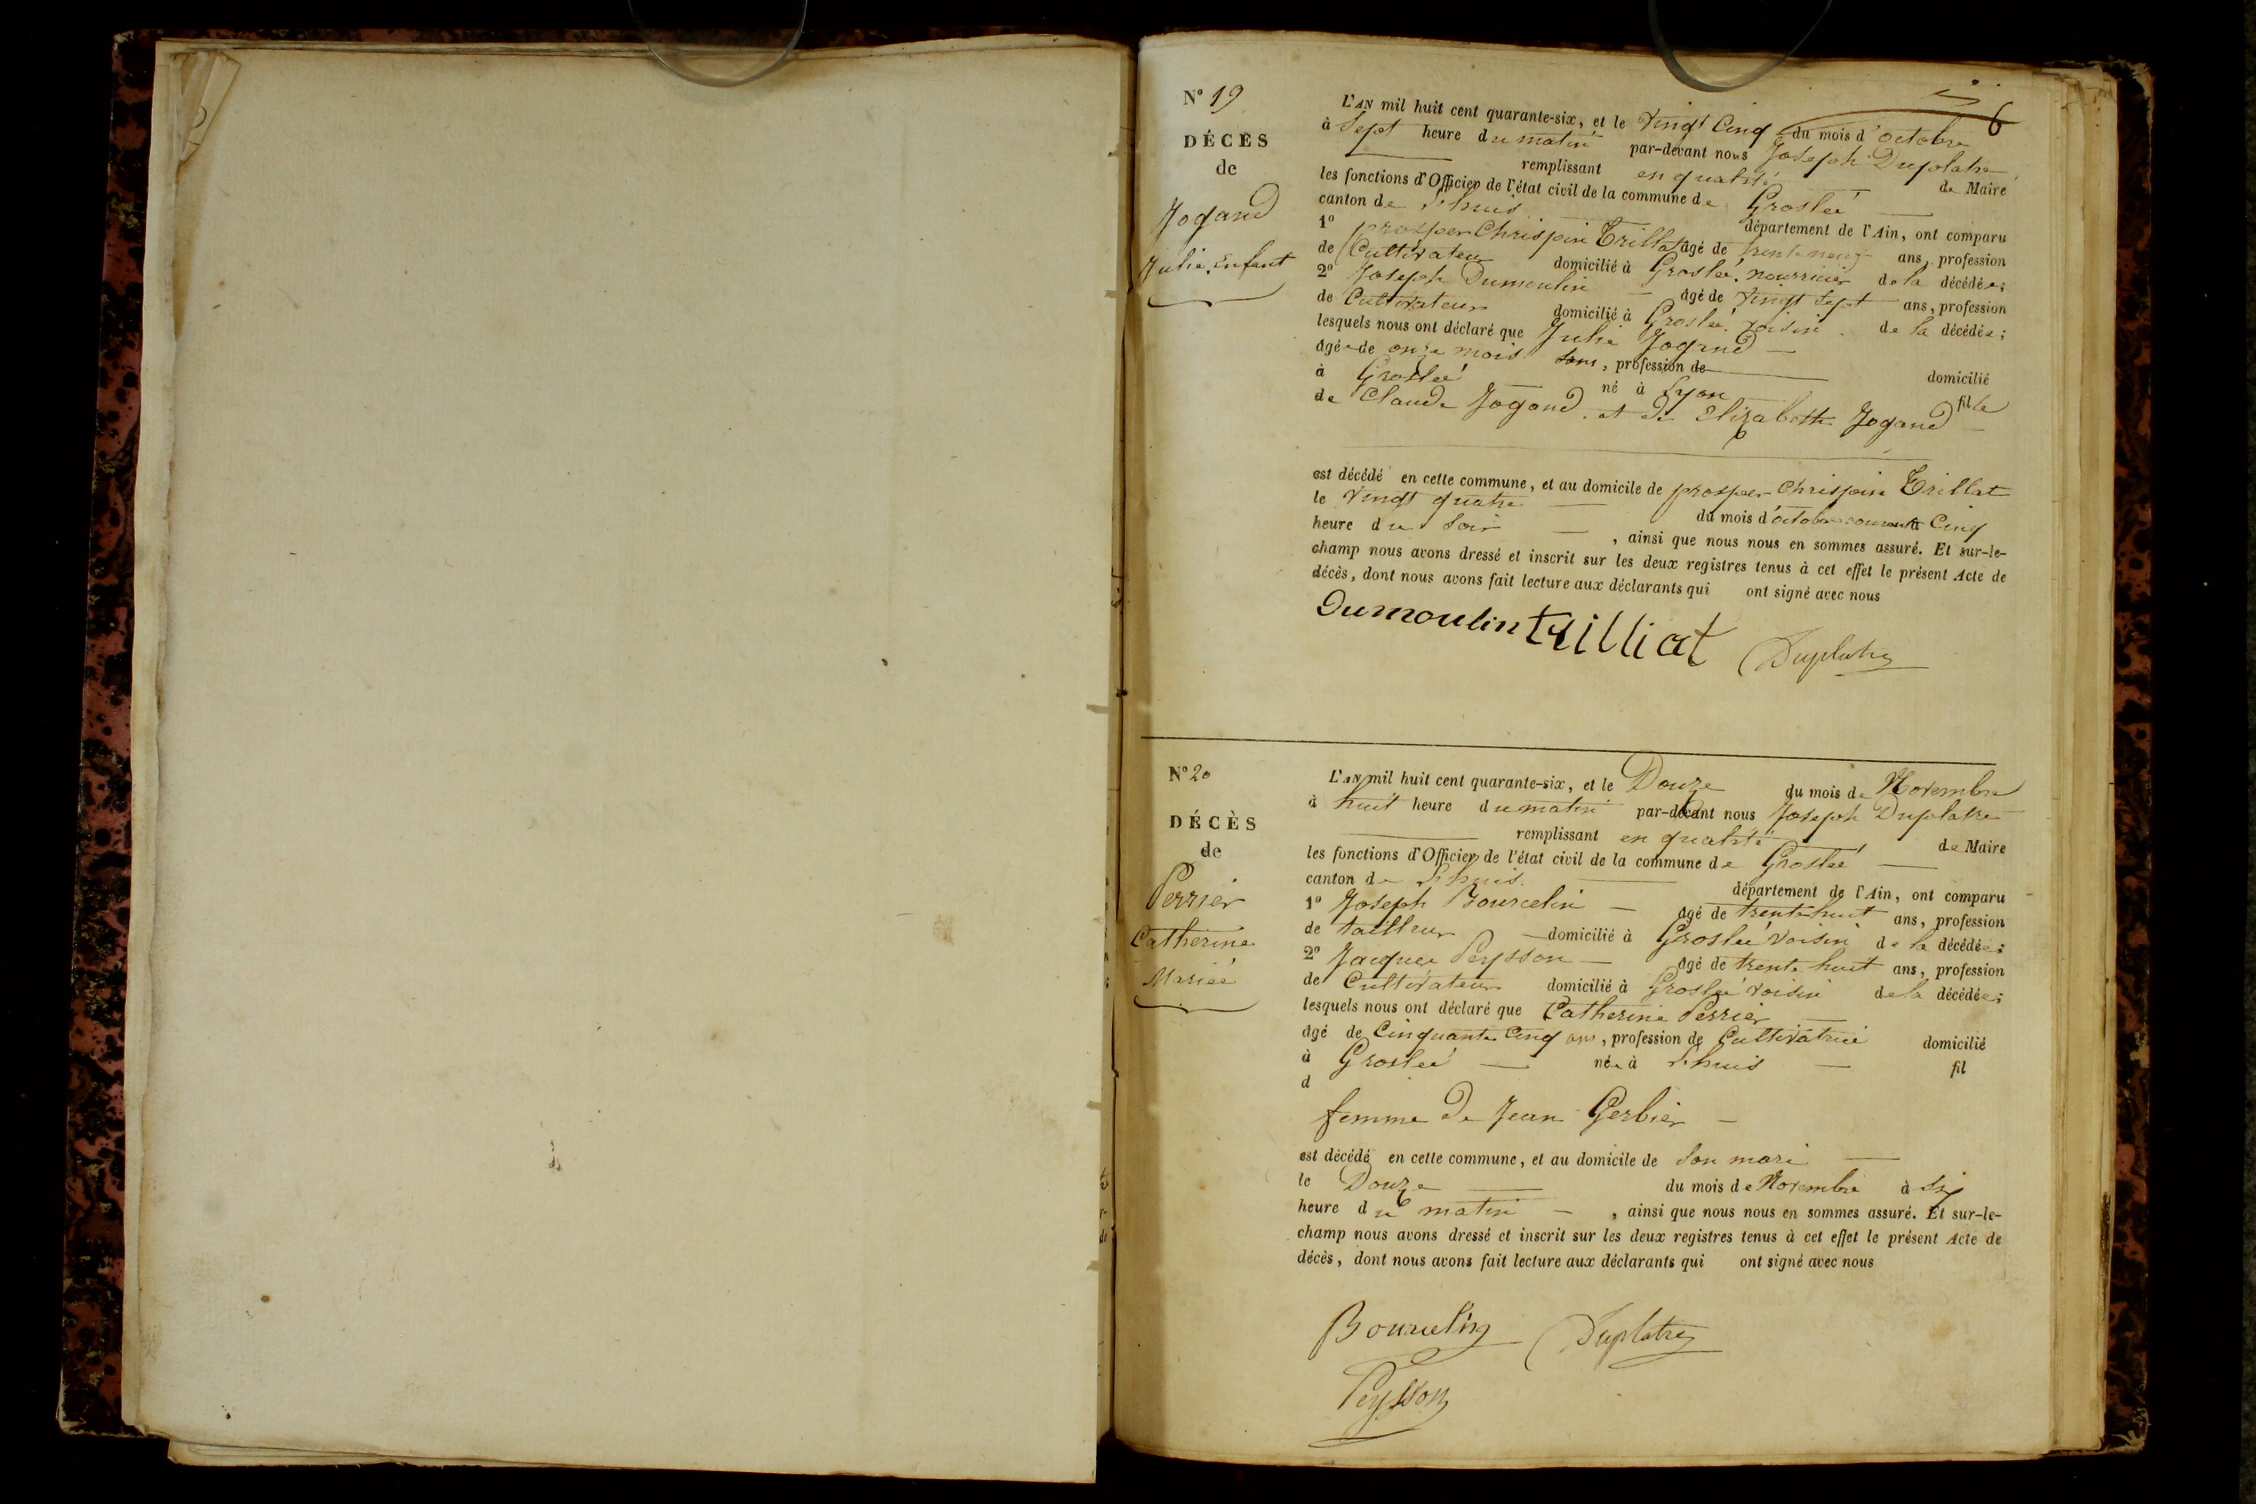 6
N° 19
DÉCÈS
de
Jogand
Julie. Enfant
L'AN mil huit cent quarante-six, et le Vingt Cinq du mois d'octobre
à Sept heure du matin par-devant nous Joseph Duplatre
remplissant en qualité de Maire
les fonctions d'Officier de l'état civil de la commune de Groslée
canton de Lhuis département de l'Ain, ont comparu
1° prosper Chrispin Trillat âgé de trente neuf ans, profession
de Cultivateur domicilié à Groslée. nourricier de la décédée;
2° Joseph Dumoulin âgé de vingt sept ans, profession
de Cultivateur domicilié à Groslée. voisin de la décédée;
lesquels nous ont déclaré que Julie Jogand
âgée de onze mois ans, profession de domicilié
à Groslée né à Lyon fille
de Claude Jogand et de Elizabeth Jogand
est décédé en cette commune, et au domicile de prosper Chrispin Trillat
le vingt quatre du mois d'octobre courant à Cinq
heure du Soir, ainsi que nous nous en sommes assuré. Et sur-le-
champ nous avons dressé et inscrit sur les deux registres tenus à cet effet le présent Acte de
décès, dont nous avons fait lecture aux déclarants qui ont signé avec nous
Dumoulin trilliat Duplatre
N° 20
DÉCÈS
de
Perrier
Catherine
Mariée
L'AN mil huit cent quarante-six, et le Douze du mois de Novembre
à huit heure du matin par-devant nous Joseph Duplatre
remplissant en qualité de Maire
les fonctions d'Officier de l'état civil de la commune de Groslée
canton de Lhuis. département de l'Ain, ont comparu
1° Joseph Bourcelin âgé de trente huit ans, profession
de tailleur domicilié à Groslée voisin de la décédée;
2° Jacques Peysson âgé de trente huit ans, profession
de Cultivateur domicilié à Groslée voisin de la décédée;
lesquels nous ont déclaré que Catherine Perrier
âgé de Cinquante Cinq ans, profession de Cultivatrice domicilié
à Groslée née à Lhuis fil
d
femme de Jean Gerbier
est décédé en cette commune, et au domicile de Son mari
le Douze du mois de Novembre à Six
heure du matin, ainsi que nous nous en sommes assuré. Et sur-le-
champ nous avons dressé et inscrit sur les deux registres tenus à cet effet le présent Acte de
décès, dont nous avons fait lecture aux déclarants qui ont signé avec nous
Bourcelin Duplatre
Peysson